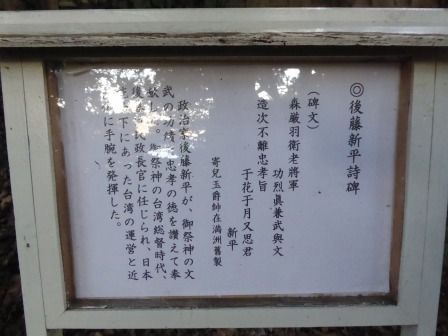 ◎後藤新平詩碑
(碑文)
森厳羽衛老將軍
功烈眞兼武與文
造次不離忠孝旨
于花于月又思君
新平
寄兒玉爵帥在満洲舊製
政治家後藤新平が、御祭神の文
武の功績、忠孝の徳を讃えて奉
献した。御祭神の台湾総督時代、
民政長官に任じられ、日本
下にあった台湾の運営と近
に手腕を発揮した。